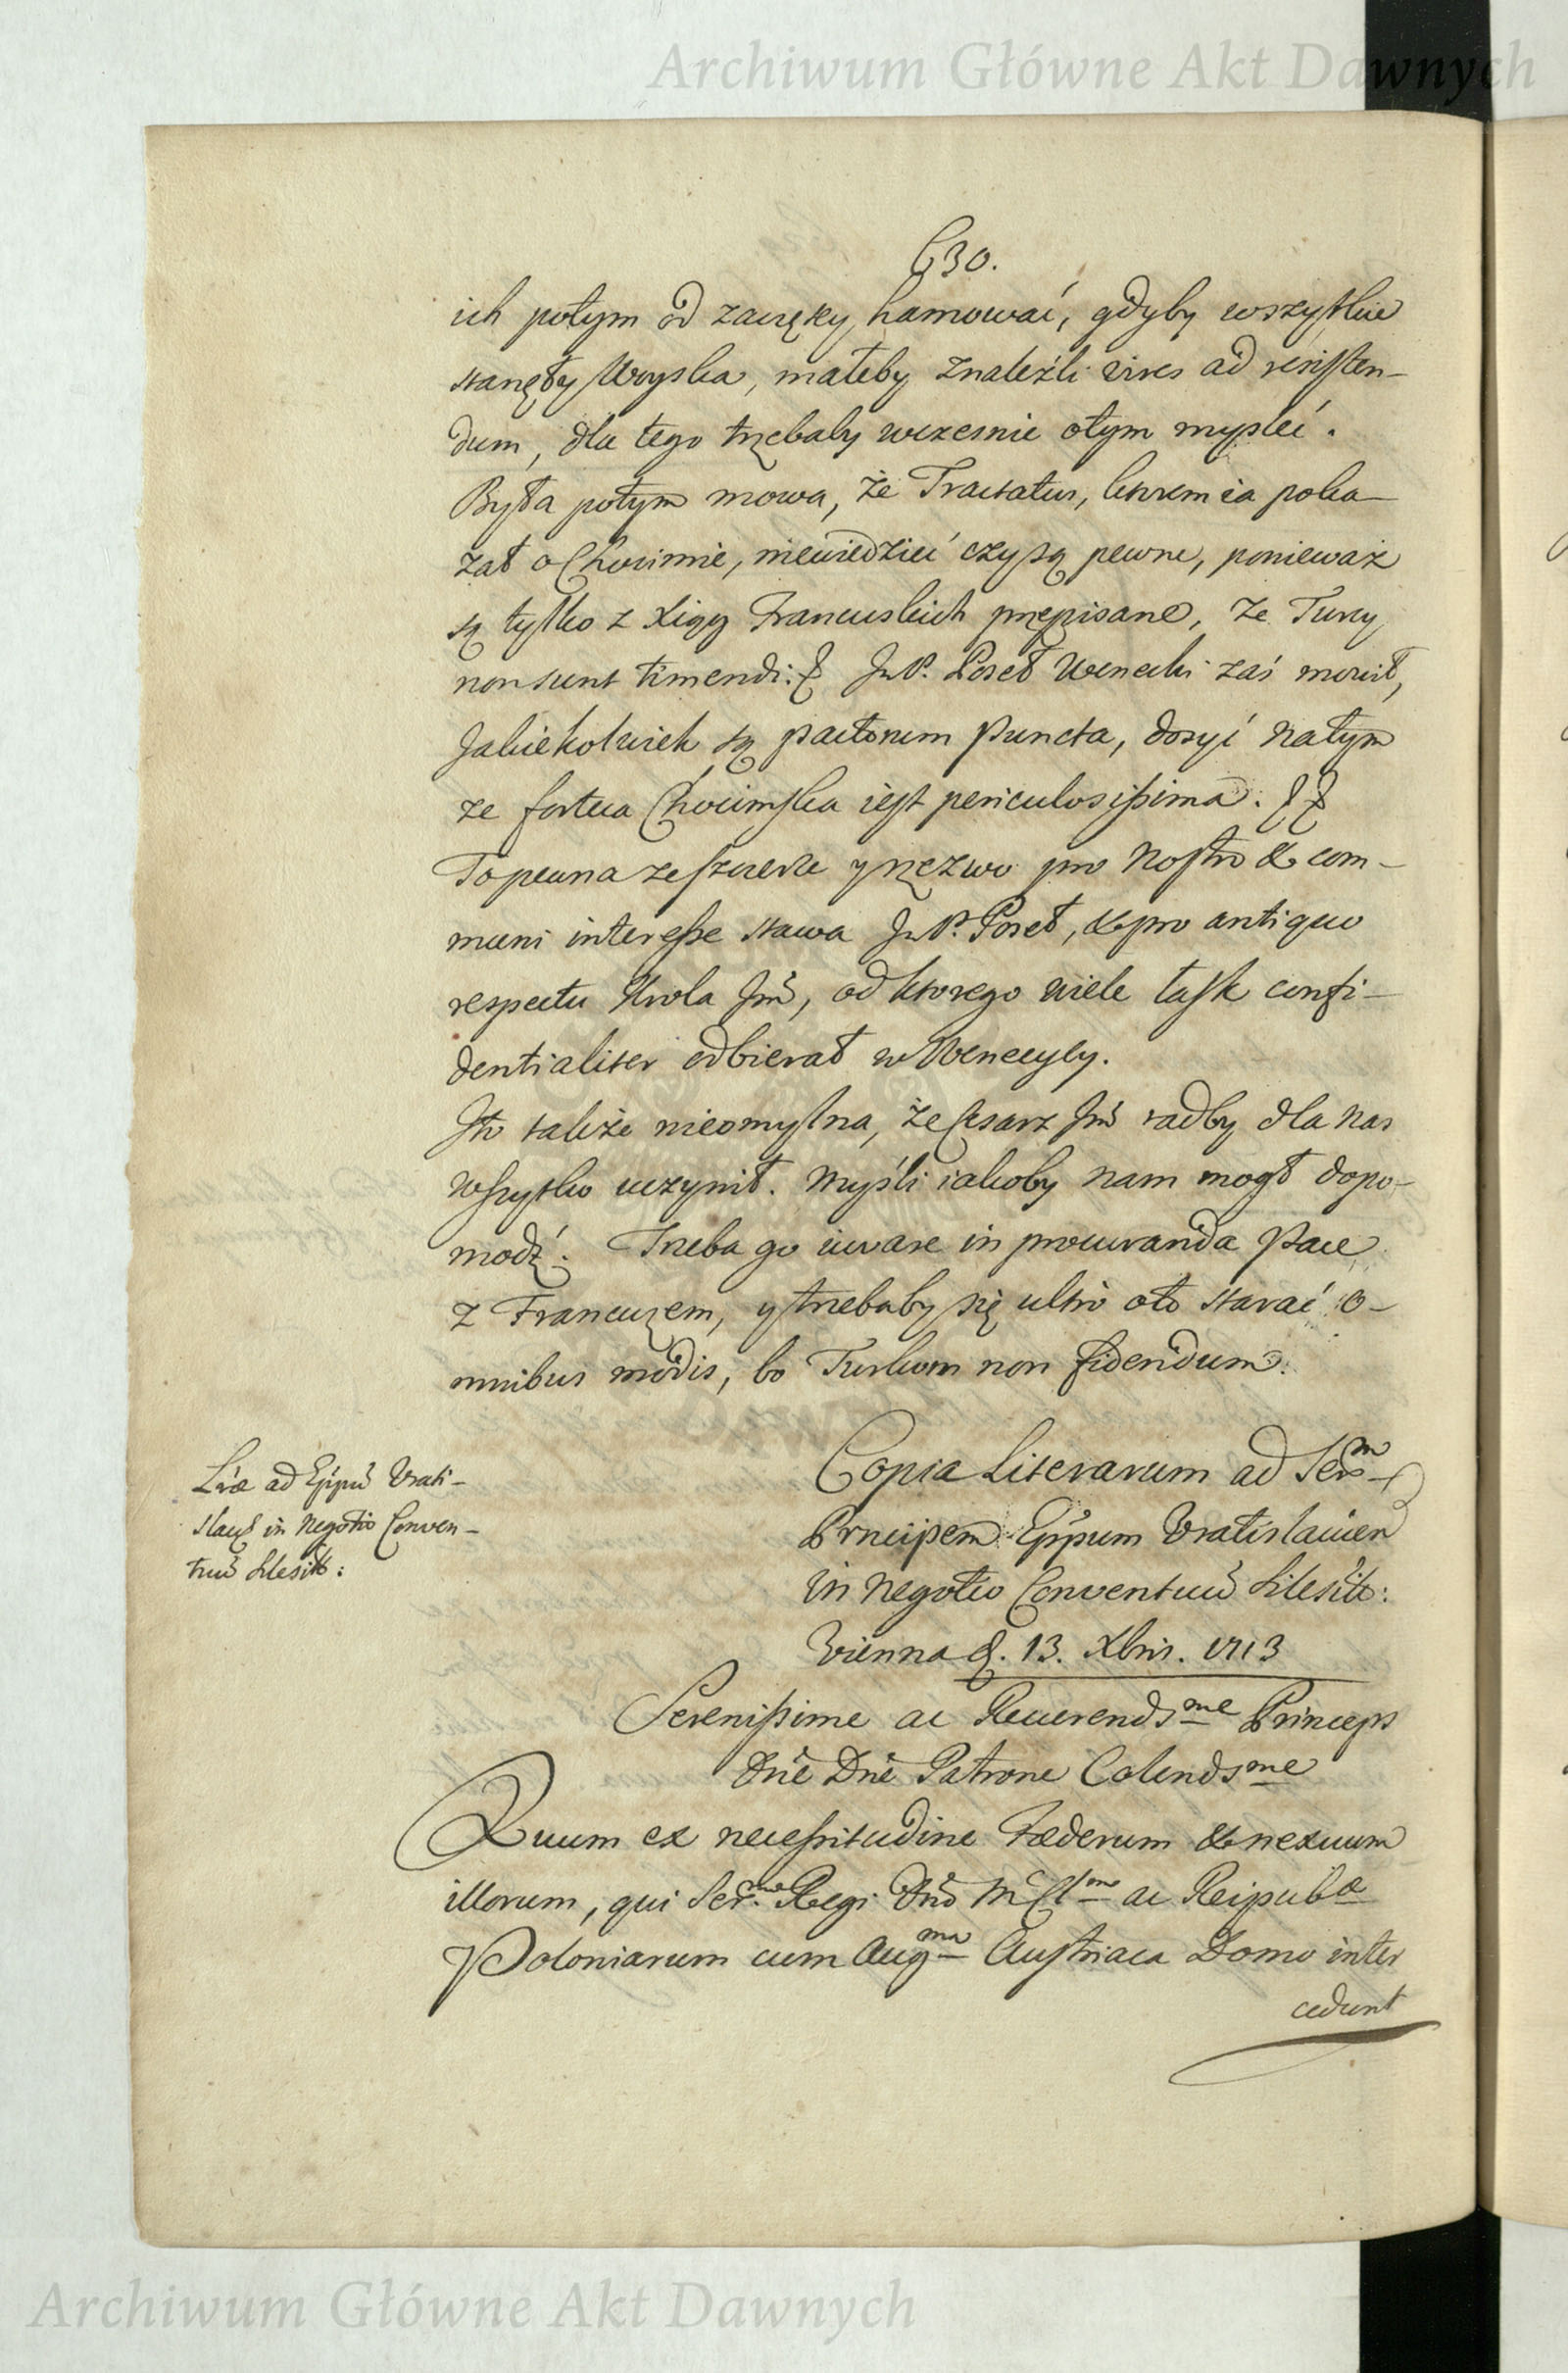 Archiwum Główne Akt Dawnych
630.
ich potym od zaczęky hamować, gdyby wszytkie
stanęły Woyska, małeby znaleźli vires ad resisten-
dum, dla tego trzebaby wczesnie otym mysleć.
Była potym mowa, że Tractatus, ktorem ia poka-
zał o Chocimie, niewiedzieć czy są pewne, ponieważ
są tylko z Xiąg Francuskich przepisane, że Turcy
non sunt timendi: JmP. Poseł Wenecki zaś mowił,
Jakiekolwiek są pactorum puncta, dosyć natym
że forteca Chocimska iest periculosissima.
To pewna ze szczerze y rzezwo pro nostro & com-
muni interesse stawa JmP. Poseł, & pro antiquo
respectu Krola Jm̃, od ktorego wiele łask confi-
dentialiter odbierał w Wenecyey.
Jest takiże nieomylna, że Cesarz Jm̃ radby dla nas
wszytko uczynił. Myśli iakoby nam mogł dopo-
modz. Trzeba go iuvare in procuranda Pace
z Francuzem, y trzebaby się ultro oto starać o-
mnibus modis, bo Turkom non fidendum.
Lræ ad Eppũ Vrati-
slav in Negotio Conven-
tuũ Silesit:
Copia Literarum ad Ser<sup>m</sup>
Prncipem Eppum Vratislavien
in negotio Conventuũ Silesit:
Vienna d. 13. Xbris. 1713
Serenissime ac Reverendsme Princeps
Dñe Dñe Patrone Colendsme
Quum ex necessitudine Fœderum & nexuum
illorum, qui Ser<sup>mo</sup> Regi Dño M Cl<sup>mo</sup> ac Reipubæ
Poloniarum cum Aug<sup>ma</sup> Austriaca Domo inter
cedunt
Archiwum Główne Akt Dawnych